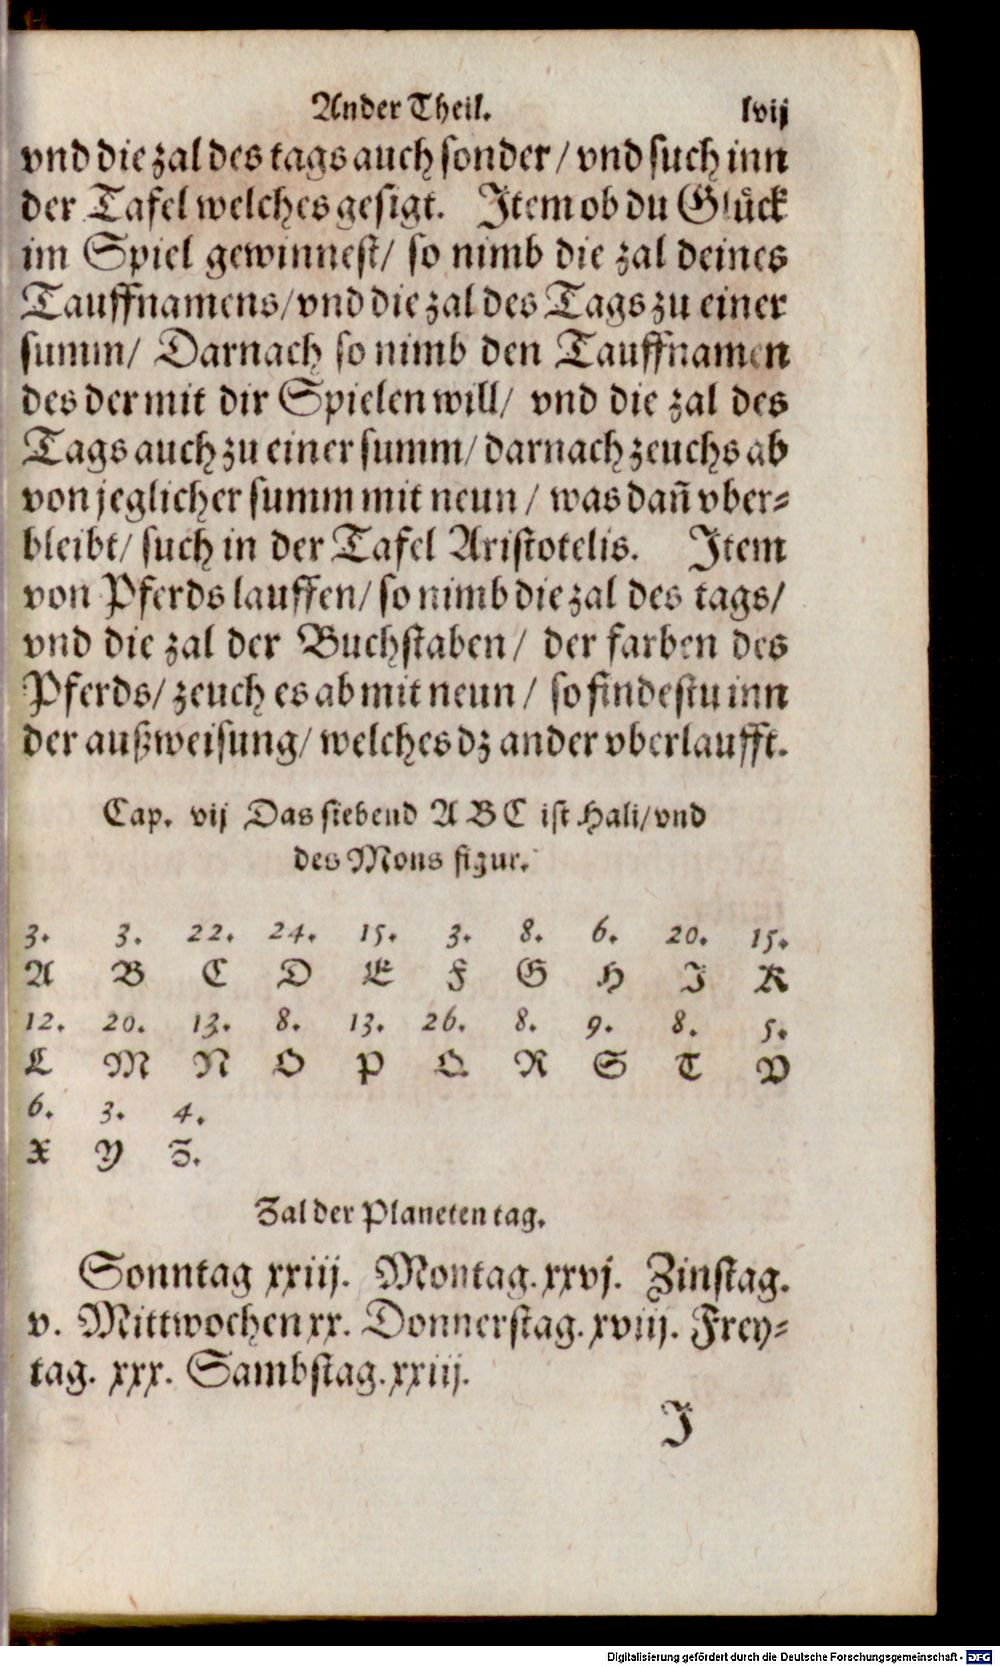 Ander Theil. lvij
vnd die zal des tags auch sonder / vnd such inn
der Tafel welches gesigt. Item ob du Glück
im Spiel gewinnest / so nimb die zal deines
Tauffnamens / vnd die zal des Tags zu einer
summ / Darnach so nimb den Tauffnamen
des der mit dir Spielen will / vnd die zal des
Tags auch zu einer summ / darnach zeuchs ab
von jeglicher summ mit neun / was dañ vber-
bleibt / such in der Tafel Aristotelis. Item
von Pferds lauffen / so nimb die zal des tags /
vnd die zal der Buchstaben / der farben des
Pferds / zeuch es ab mit neun / so findestu inn
der außweisung / welches dz ander vberlaufft.
Cap. vij Das siebend A B C ist Hali / vnd
des Mons figur.
3. 3. 22. 24. 15. 3. 8. 6. 20. 15.
A B C D E F G H I K
12. 20. 13. 8. 13. 26. 8. 9. 8. 5.
L M N O P Q R S T V
6. 3. 4.
X Y Z.
Zal der Planeten tag.
Sonntag xxiij. Montag. xxvj. Zinstag.
v. Mittwochen xx. Donnerstag. xviij. Frey-
tag. xxx. Sambstag. xxiij.
J
Digitalisierung gefördert durch die Deutsche Forschungsgemeinschaft - DFG